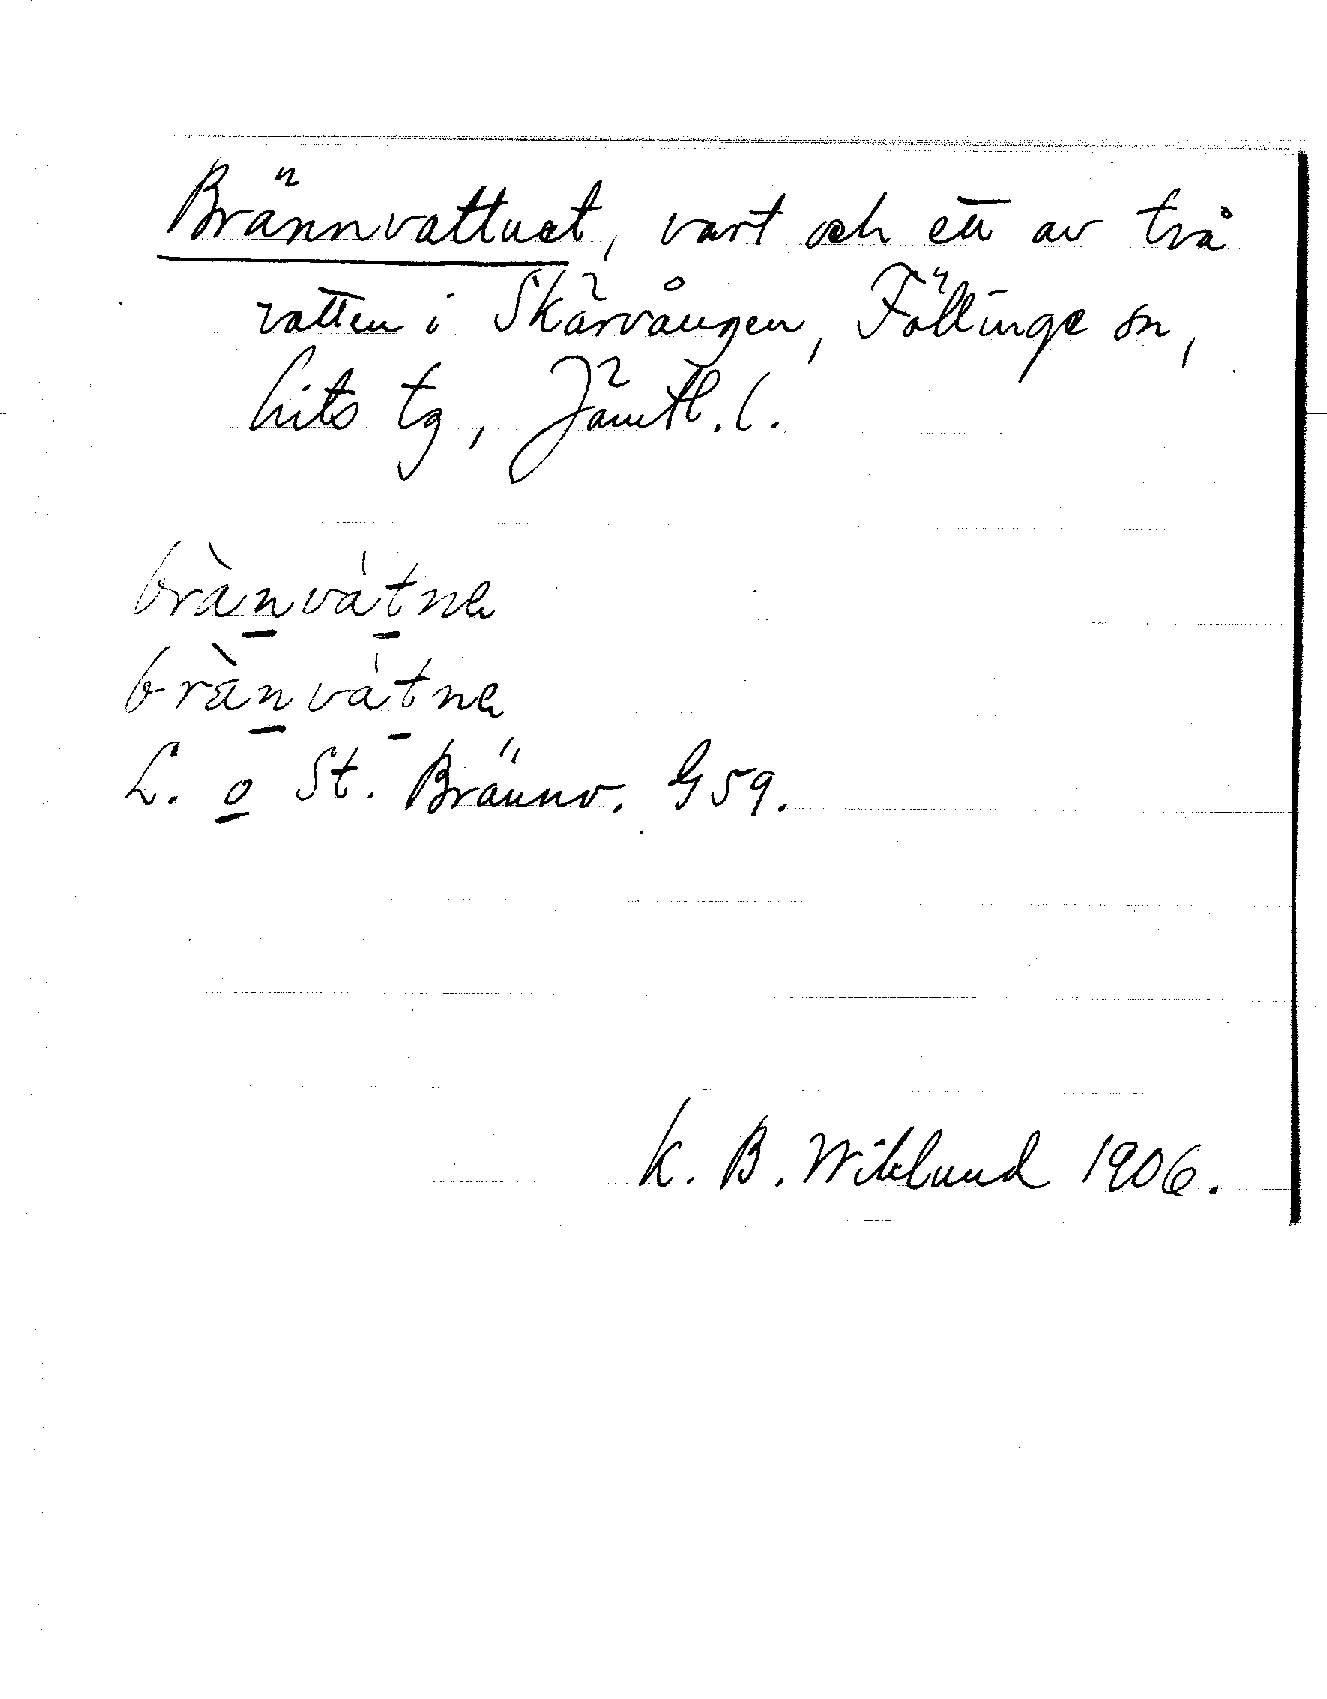 Brännvattnet, vart och ett av två
vatten i Skärvången, Föllinge sn,
Lits tg, Jämtl. l.
brànvátne
brànvátne
L. o St. Brännv. G 59.
K. B. Wiklund 1906.